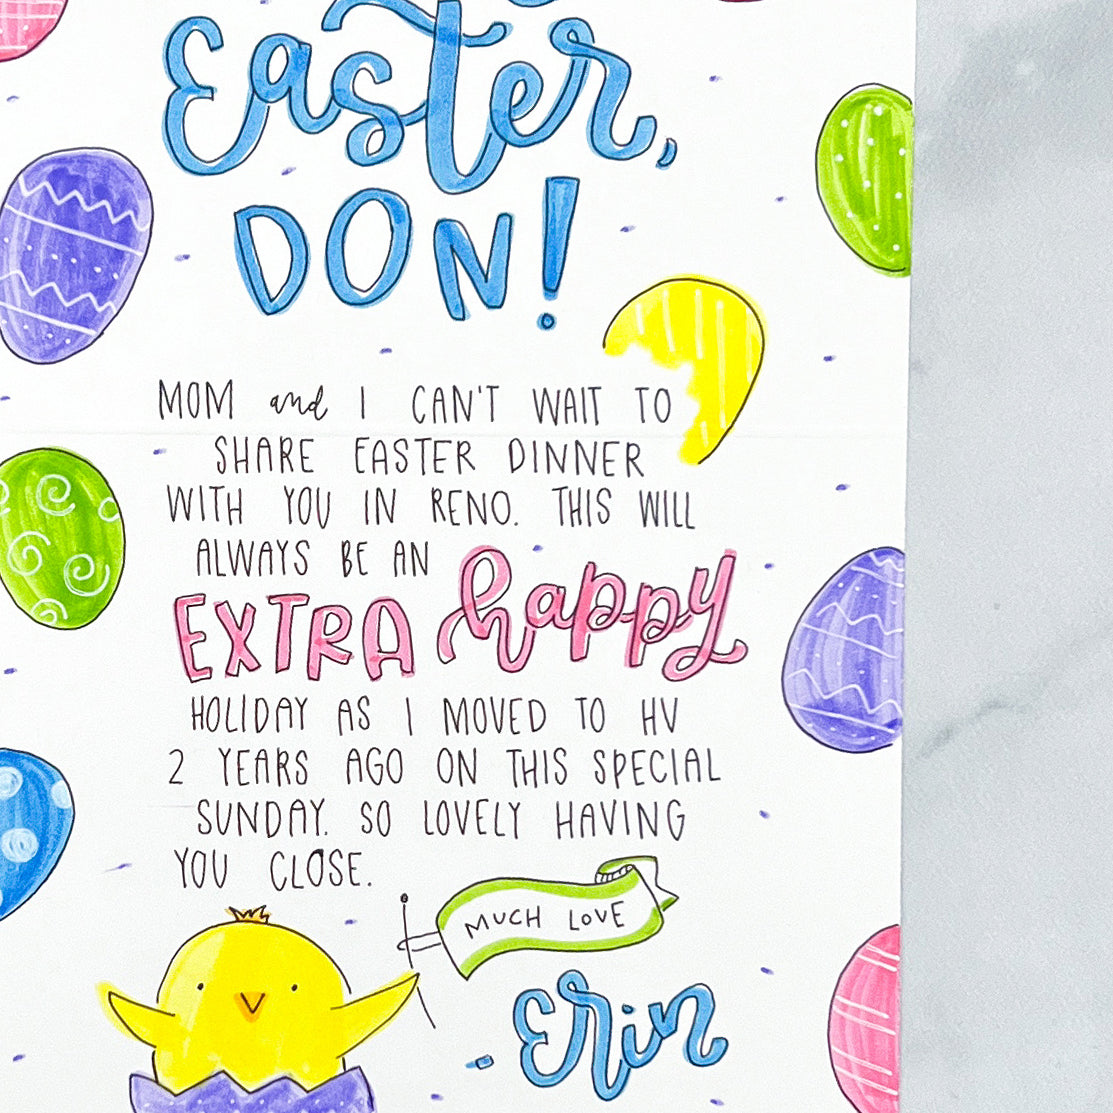 Easter,
DON!
MOM and I CAN'T WAIT TO
SHARE EASTER DINNER
WITH YOU IN RENO. THIS WILL
ALWAYS BE AN
EXTRA happy
HOLIDAY AS I MOVED TO HV
2 YEARS AGO ON THIS SPECIAL
SUNDAY. SO LOVELY HAVING
YOU CLOSE.
MUCH LOVE
- Erin